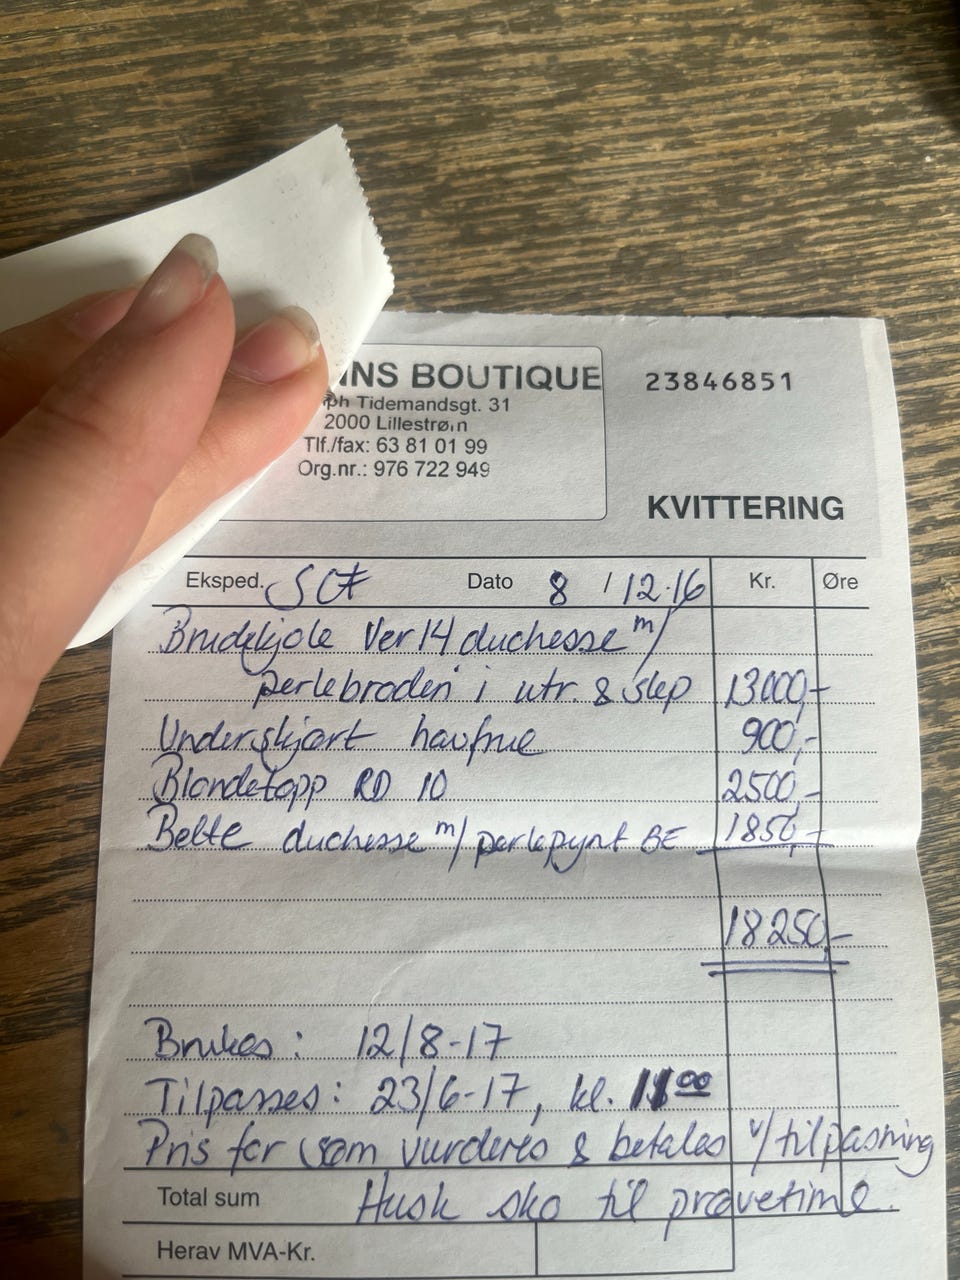 INS BOUTIQUE
ph Tidemandsgt. 31
2000 Lillestrøm
Tlf./fax: 63 81 01 99
Org.nr.: 976 722 949
23846851
KVITTERING
Eksped. Dato 8 / 12.16 Kr. Øre
Brudekjole Ver 14 duchesse m/
perlebroderi i utr. & slep 13000,-
Underskjørt havfrue 900,-
Blondetopp RD 10 2500,-
Belte duchesse m/ perlepynt BE 1850,-
18250,-
Brukes: 12/8-17
Tilpasses: 23/6-17, kl. 11 00
Pris for søm vurderes & betales v/tilpasning
Total sum Husk sko til prøvetime.
Herav MVA-Kr.